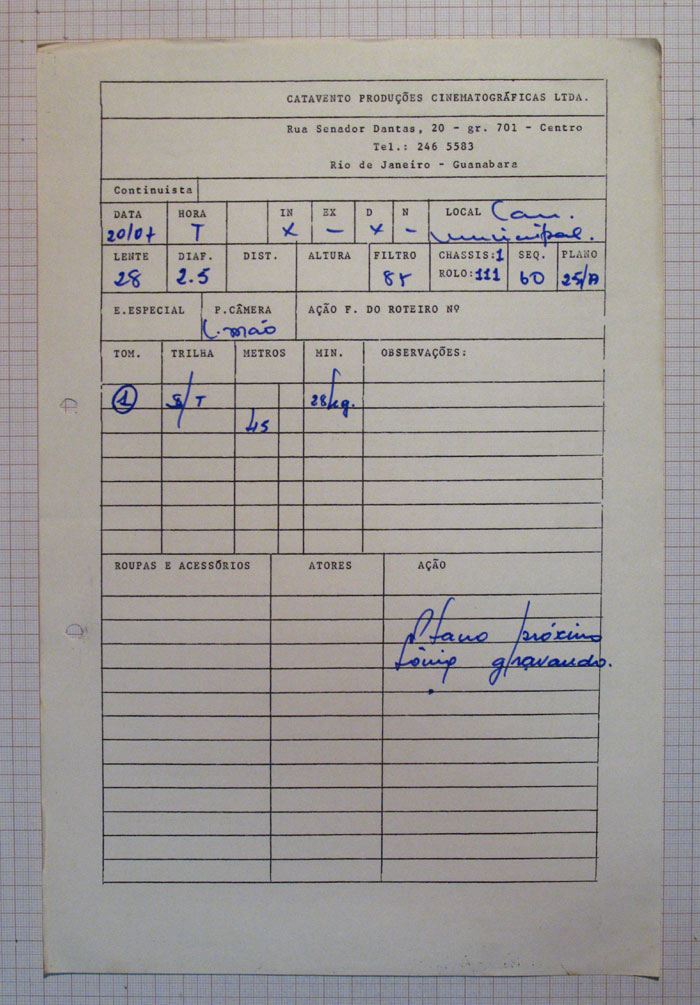 CATAVENTO PRODUÇÕES CINEMATOGRÁFICAS LTDA.
Rua Senador Dantas, 20 - gr. 701 - Centro
Tel.: 246 5583
Rio de Janeiro - Guanabara
Continuista
DATA HORA IN EX D N LOCAL Cam.
20/07 T X - X - municipal.
LENTE DIAF. DIST. ALTURA FILTRO CHASSIS:1 SEQ. PLANO
28 2.5 85 ROLO:111 60 25/A
E.ESPECIAL P.CÂMERA AÇÃO F. DO ROTEIRO Nº
C.mão
TOM. TRILHA METROS MIN. OBSERVAÇÕES:
1 S/T 28kg.
45
ROUPAS E ACESSÓRIOS ATORES AÇÃO
Plano próximo
gravando.